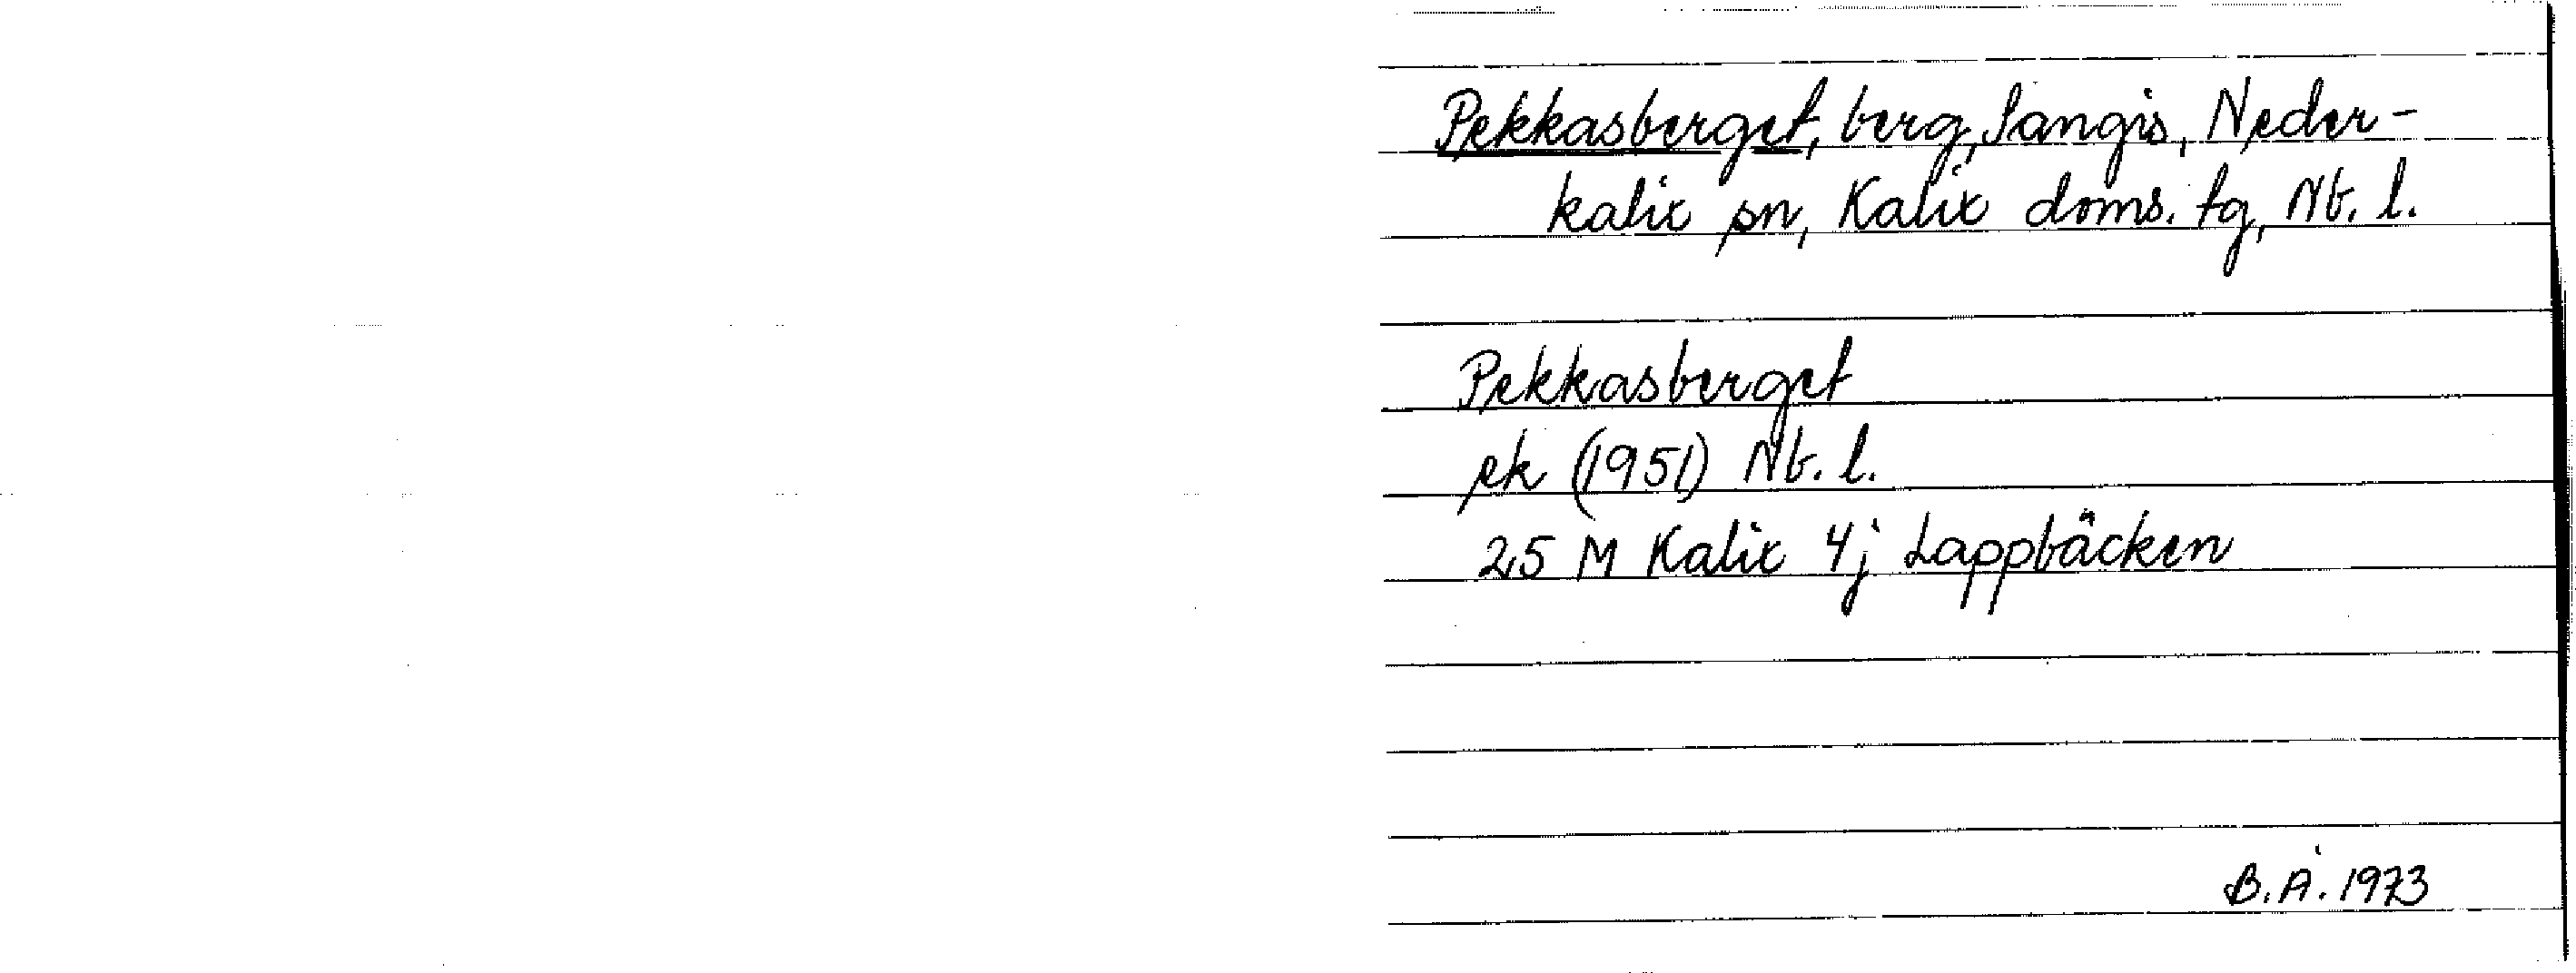 Pekkasberget, berg, Sangis, Neder-
kalix sn, Kalix doms. tg, Nb. l.
Pekkasberget
ek (1951) Nb. l.
25 M Kalix 4j Lappbäcken
B. Å. 1973